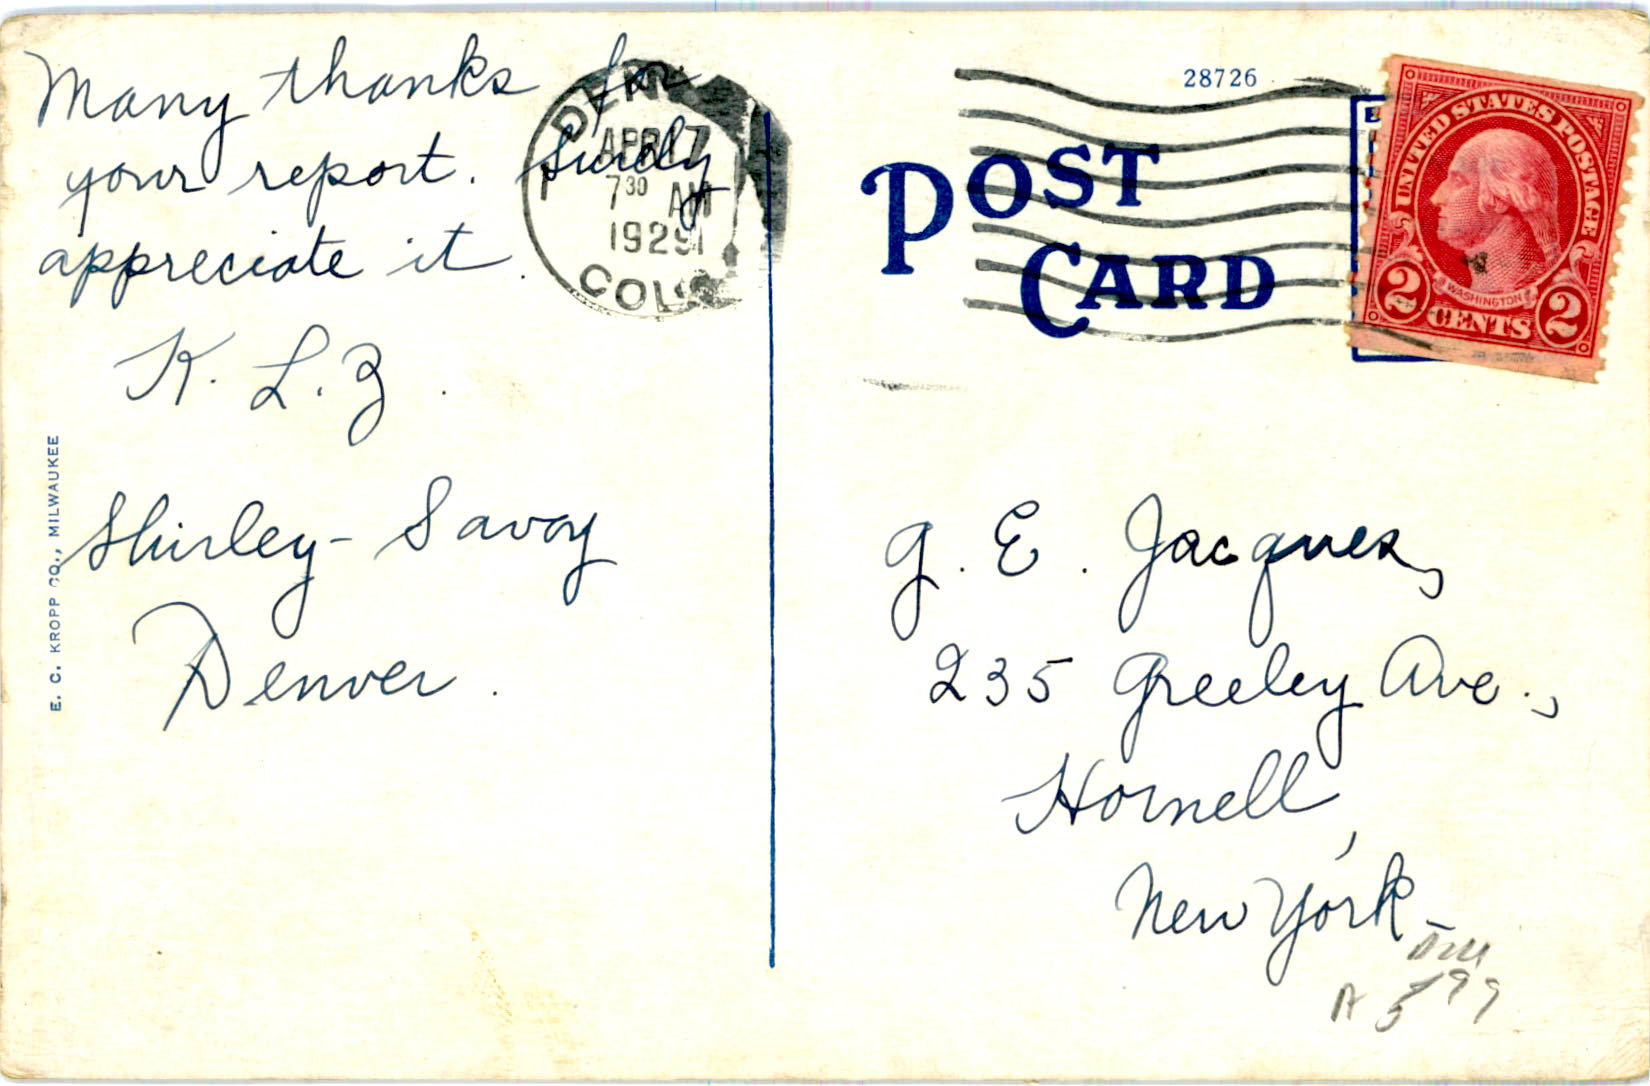 Many thanks for
your report. Surely
appreciate it.
K.L.Z.
Shirley-Savoy
Denver.
E. C. KROPP CO., MILWAUKEE
DENVER
APR 17
7 30 AM
1929
COLO.
28726
POST
CARD
UNITED STATES POSTAGE
WASHINGTON
2 CENTS 2
G. E. Jacques,
235 Greeley Ave.,
Hornell,
New York